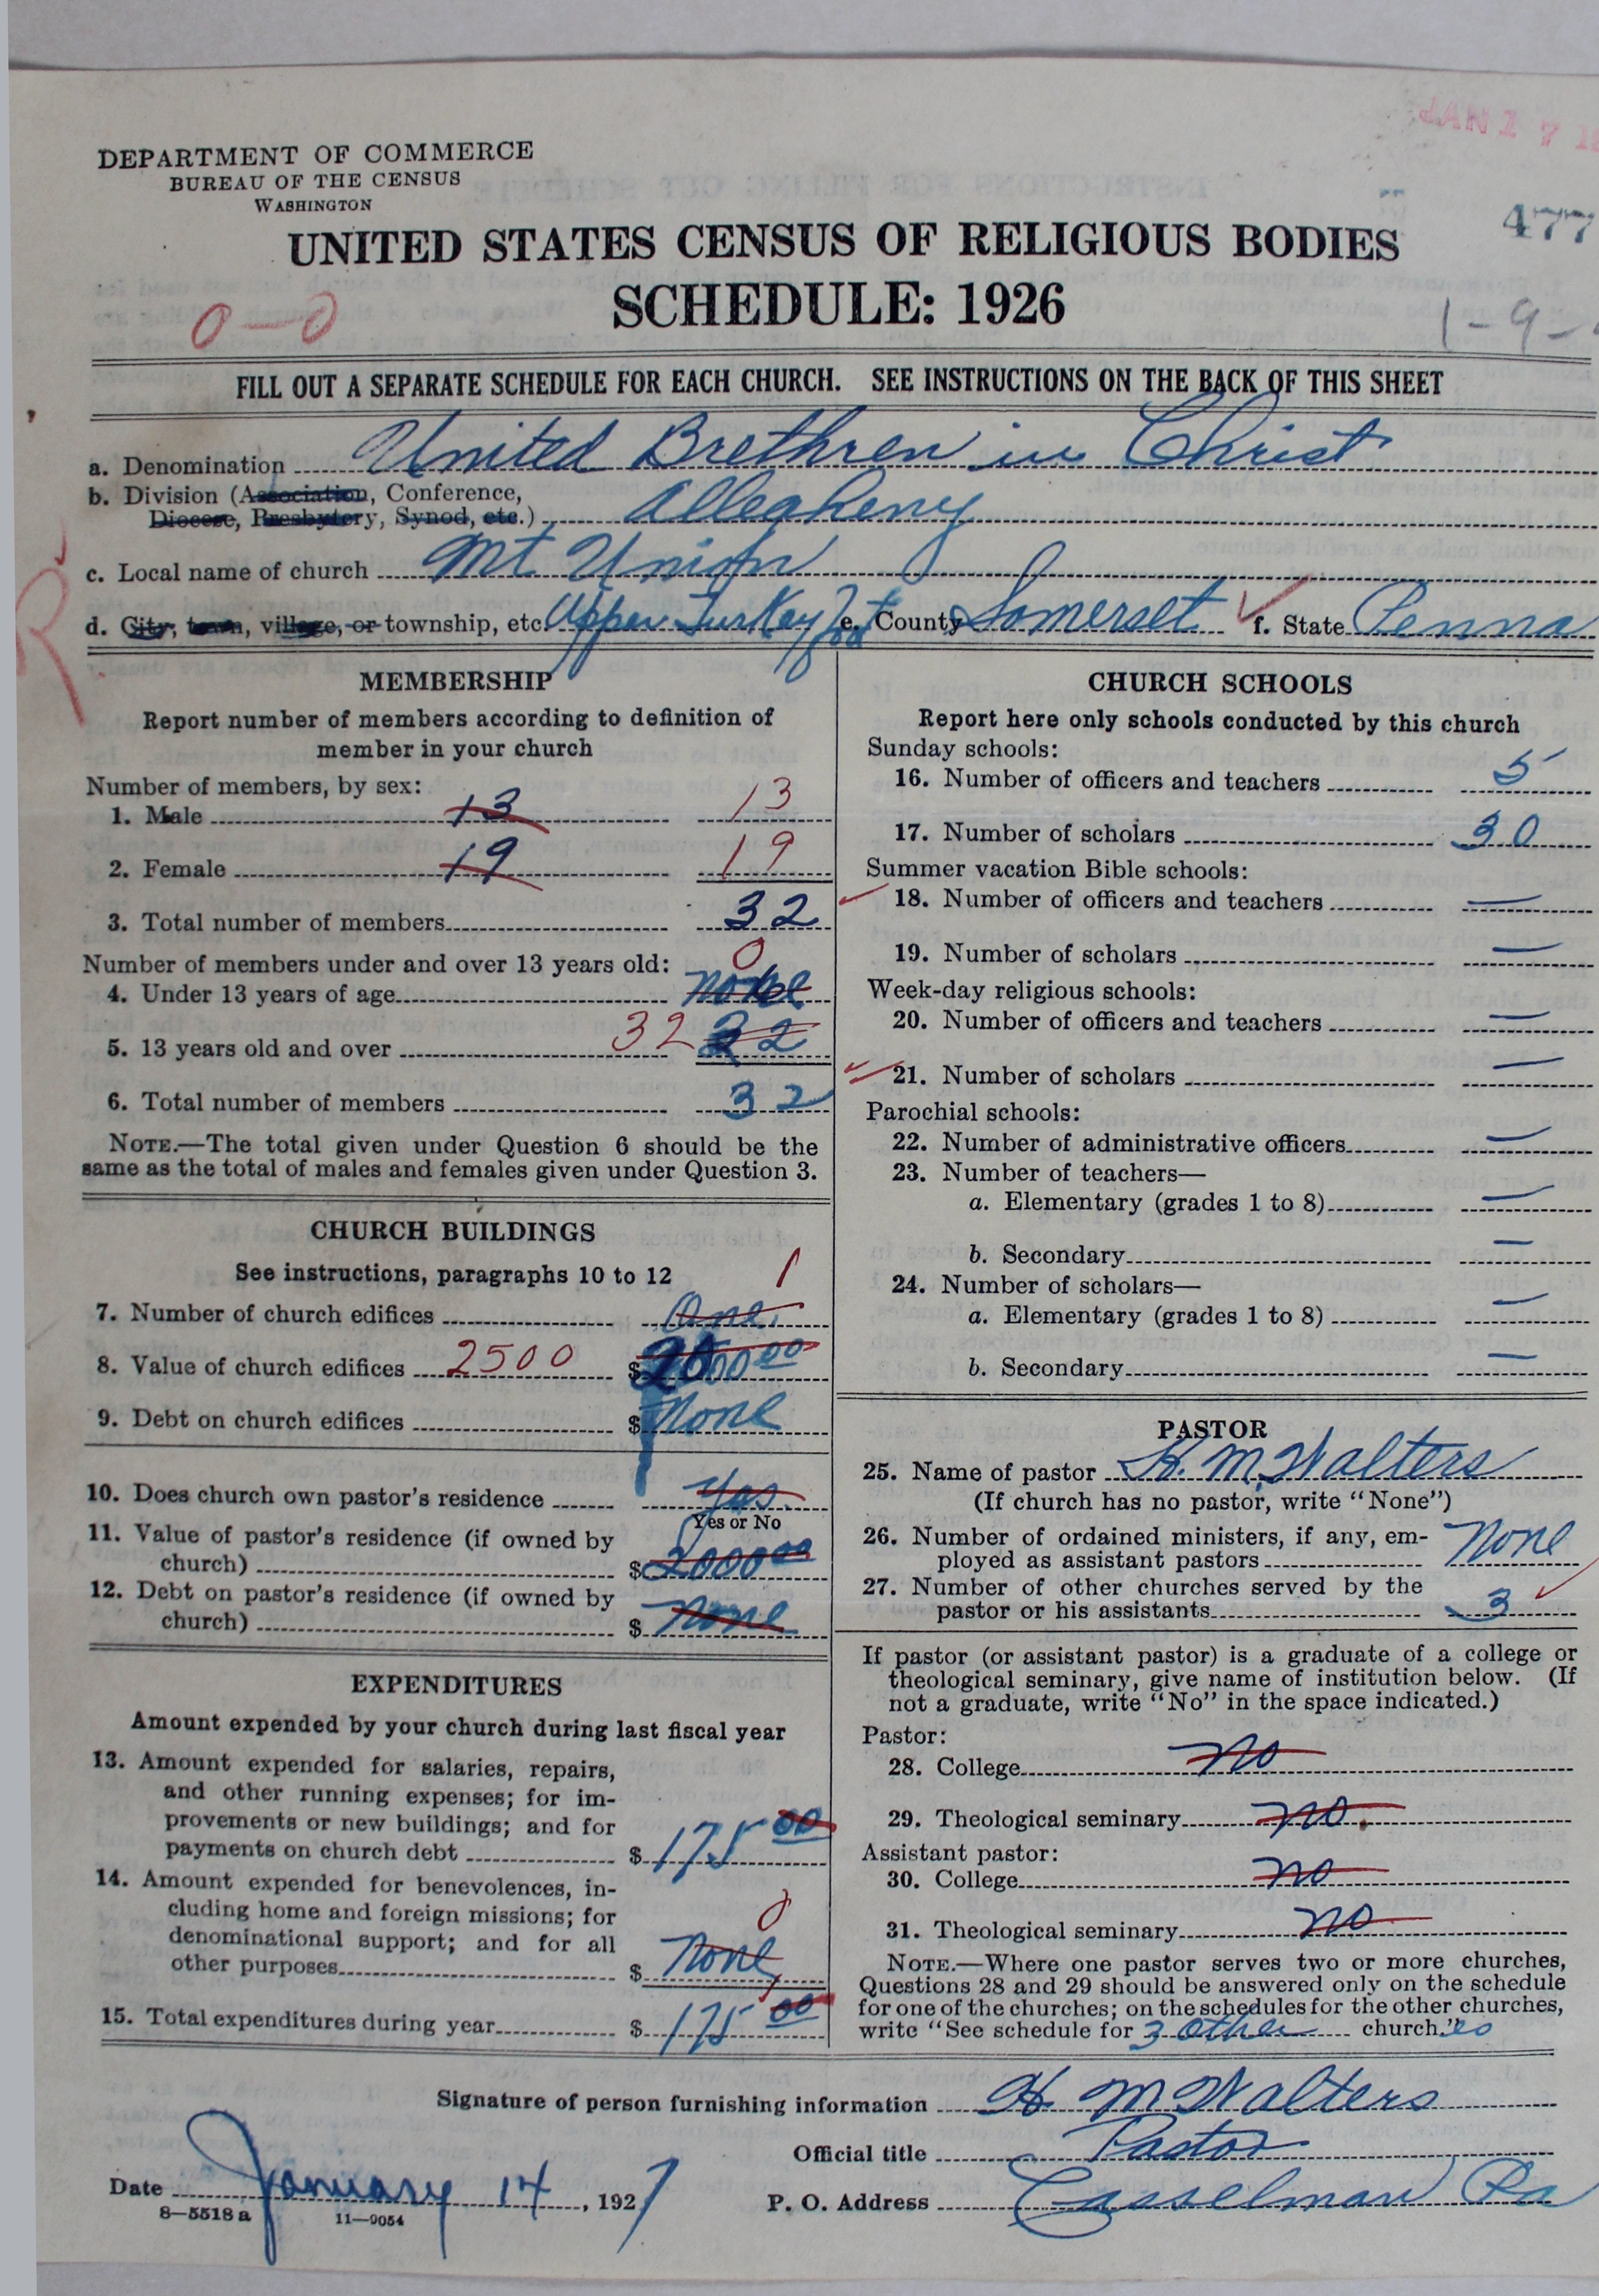 JAN 17 19
DEPARTMENT OF COMMERCE
BUREAU OF THE CENSUS
WASHINGTON
477
UNITED STATES CENSUS OF RELIGIOUS BODIES
SCHEDULE: 1926
0-0
1-9-
FILL OUT A SEPARATE SCHEDULE FOR EACH CHURCH. SEE INSTRUCTIONS ON THE BACK OF THIS SHEET
a. Denomination United Brethren in Christ
b. Division (Association, Conference,
Diocese, Presbytery, Synod, etc.) Allegheny
c. Local name of church Mt Union
R
d. City, town, village, or township, etc. Upper Turkey Foot e. County Somerset f. State Penna
MEMBERSHIP
Report number of members according to definition of
member in your church
Number of members, by sex:
1. Male 13 13
2. Female 19 19
3. Total number of members 32
Number of members under and over 13 years old: 0
4. Under 13 years of age none
5. 13 years old and over 32 32
6. Total number of members 32
NOTE.—The total given under Question 6 should be the
same as the total of males and females given under Question 3.
CHURCH BUILDINGS
See instructions, paragraphs 10 to 12 1
7. Number of church edifices One
8. Value of church edifices 2500 $
9. Debt on church edifices $ None
10. Does church own pastor's residence Yes.
Yes or No
11. Value of pastor's residence (if owned by
church) $ 2000 00
12. Debt on pastor's residence (if owned by
church) $ None
EXPENDITURES
Amount expended by your church during last fiscal year
13. Amount expended for salaries, repairs,
and other running expenses; for im-
provements or new buildings; and for
payments on church debt $ 175 00
14. Amount expended for benevolences, in-
cluding home and foreign missions; for 0
denominational support; and for all
other purposes $ None
15. Total expenditures during year $ 175 00
CHURCH SCHOOLS
Report here only schools conducted by this church
Sunday schools:
16. Number of officers and teachers 5
17. Number of scholars 30
Summer vacation Bible schools:
18. Number of officers and teachers —
19. Number of scholars —
Week-day religious schools:
20. Number of officers and teachers —
21. Number of scholars —
Parochial schools:
22. Number of administrative officers —
23. Number of teachers—
a. Elementary (grades 1 to 8) —
b. Secondary —
24. Number of scholars—
a. Elementary (grades 1 to 8) —
b. Secondary —
PASTOR
25. Name of pastor H. M. Walters
(If church has no pastor, write "None")
26. Number of ordained ministers, if any, em-
ployed as assistant pastors None
27. Number of other churches served by the
pastor or his assistants 3
If pastor (or assistant pastor) is a graduate of a college or
theological seminary, give name of institution below. (If
not a graduate, write "No" in the space indicated.)
Pastor:
28. College no
29. Theological seminary no.
Assistant pastor:
30. College no
31. Theological seminary no
NOTE.—Where one pastor serves two or more churches,
Questions 28 and 29 should be answered only on the schedule
for one of the churches; on the schedules for the other churches,
write "See schedule for 3 other church." es
Signature of person furnishing information H M Walters
Official title Pastor
Date January 14, 1927
P. O. Address Casselman Pa
8—5518 a 11—9054